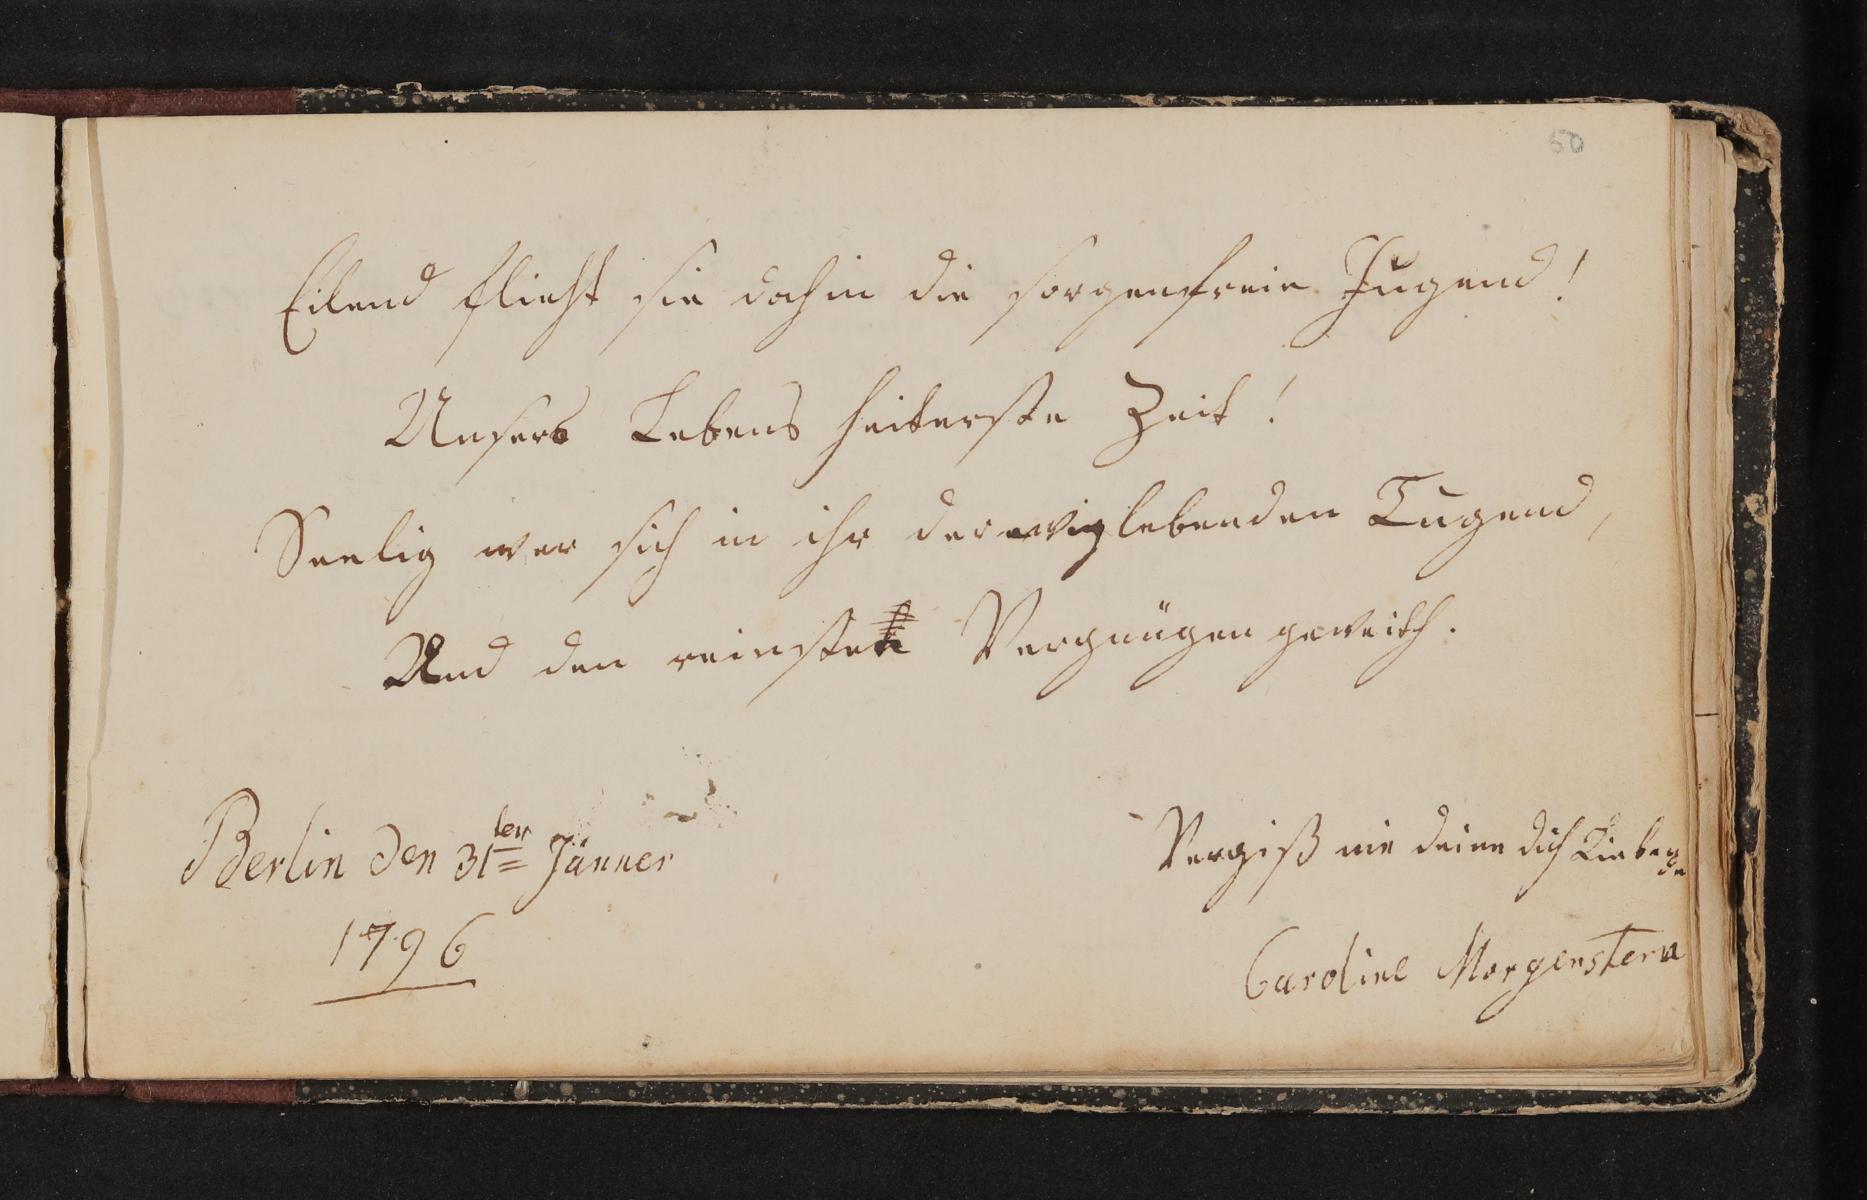 50
Eilend flieht sie dahin die sorgenfreie Jugend!
Unsers Lebens heiterste Zeit!
Seelig wer sich in ihr der ewig lebenden Tugend,
Und den reinsten Vergnügen geweith.
Berlin den 31ten Jänner
1796
Vergiß nie deine dich Liebende
Caroline Morgenstern